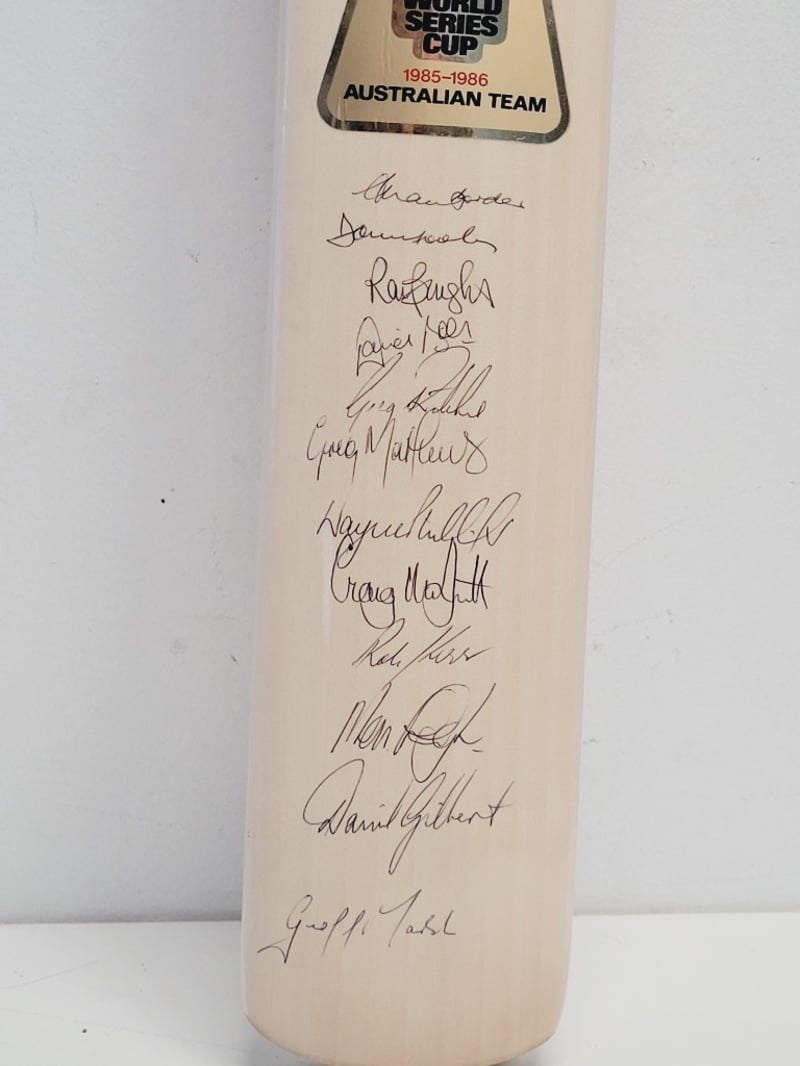 WORLD
SERIES
CUP
1985–1986
AUSTRALIAN TEAM
Allan Border
Ray Bright
Greg Ritchie
Greg Matthews
Wayne Phillips
Craig McDermott
Rob Kerr
David Gilbert
Geoff Marsh